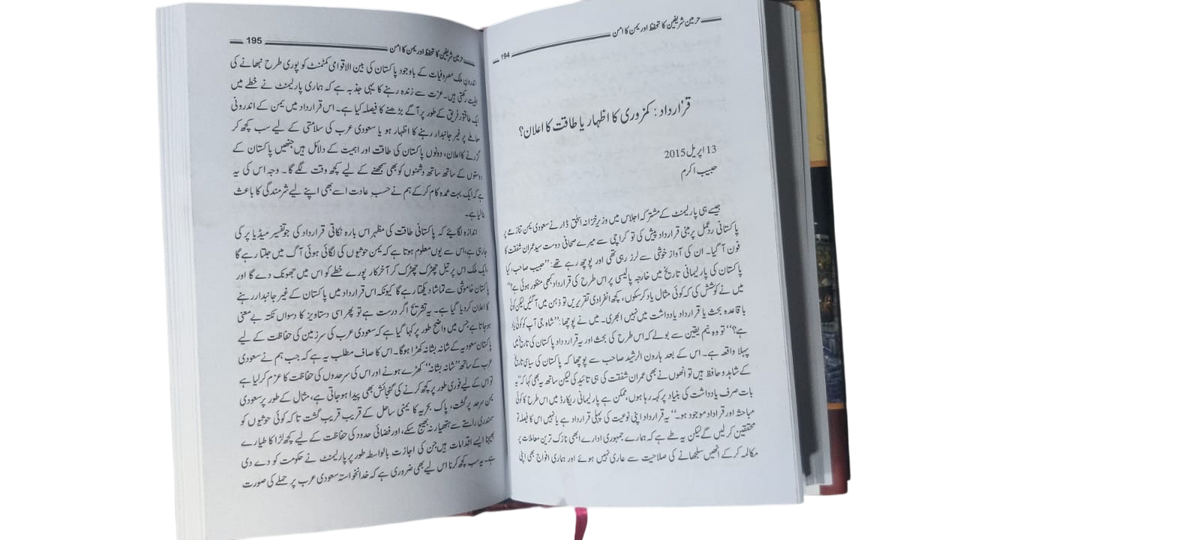 حرمین شریفین کا تحفظ اور یمن کا امن
194
قرارداد: کمزوری کا اظہار یا طاقت کا اعلان؟
13 اپریل 2015
حبیب اکرم
جیسے ہی پارلیمنٹ کے مشترکہ اجلاس میں وزیر خزانہ اسحٰق ڈار نے سعودی یمن تنازعے پر
پاکستانی ردعمل پر مبنی قرارداد پیش کی تو کراچی سے میرے صحافی دوست سید عمران شفقت کا
فون آ گیا۔ ان کی آواز خوشی سے لرز رہی تھی اور پوچھ رہے تھے: ”حبیب صاحب، کیا
پاکستان کی پارلیمانی تاریخ میں خارجہ پالیسی پر اس طرح کی قرارداد کبھی منظور ہوئی ہے“
میں نے کوشش کی کہ کوئی مثال یاد کر سکوں، کچھ انفرادی تقریریں تو ذہن میں آ گئیں لیکن کوئی
باقاعدہ بحث یا قرارداد یادداشت میں نہیں ابھری۔ میں نے پوچھا: ”شاہ جی آپ کو کوئی یاد
ہے؟“ تو وہ نیم یقین سے بولے کہ اس طرح کی بحث اور یہ قرارداد پاکستان کی تاریخ میں
پہلا واقعہ ہے۔ اس کے بعد ہارون الرشید صاحب سے پوچھا کہ پاکستان کی سیاسی تاریخ
کے شاہد و حافظ ہیں تو انھوں نے بھی عمران شفقت کی ہی تائید کی لیکن ساتھ یہ بھی کہا کہ ”یہ
بات صرف یادداشت کی بنیاد پر کہہ رہا ہوں، ممکن ہے پارلیمانی ریکارڈ میں اس طرح کا کوئی
مباحثہ اور قرارداد موجود ہو۔“ یہ قرارداد اپنی نوعیت کی پہلی قرارداد ہے یا نہیں اس کا فیصلہ تو
محققین کر لیں گے لیکن یہ طے ہے کہ ہمارے جمہوری ادارے ابھی نازک ترین معاملات پر
مکالمہ کر کے انھیں سلجھانے کی صلاحیت سے عاری نہیں ہوئے اور ہماری افواج بھی اپنی
حرمین شریفین کا تحفظ اور یمن کا امن
195
اندرون ملک مصروفیات کے باوجود پاکستان کی بین الاقوامی کمٹمنٹ کو پوری طرح نبھانے کی
اہلیت رکھتی ہیں۔ عزت سے زندہ رہنے کا یہی جذبہ ہے کہ ہماری پارلیمنٹ نے خطے میں
ایک طاقتور فریق کے طور پر آگے بڑھنے کا فیصلہ کیا ہے۔ اس قرارداد میں یمن کے اندرونی
معاملے پر غیر جانبدار رہنے کا اظہار ہو یا سعودی عرب کی سلامتی کے لیے سب کچھ کر
گزرنے کا اعلان، دونوں پاکستان کی طاقت اور اہمیت کے دلائل ہیں جنھیں پاکستان کے
دوستوں کے ساتھ ساتھ دشمنوں کو بھی سمجھنے کے لیے کچھ وقت لگے گا۔ وجہ اس کی یہ
ہے کہ ایک بہت عمدہ کام کر کے ہم نے حسب عادت اسے بھی اپنے لیے شرمندگی کا باعث
بنا لیا ہے۔
اندازہ لگائیے کہ پاکستانی طاقت کی مظہر اس بارہ نکاتی قرارداد کی جو تفسیر میڈیا پر کی
جا رہی ہے، اس سے یوں معلوم ہوتا ہے کہ یمن حوثیوں کی لگائی ہوئی آگ میں جلتا رہے گا
، ایک ملک اس پر تیل چھڑک چھڑک کر آخر کار پورے خطے کو اس میں جھونک دے گا اور
پاکستان خاموشی سے تماشا دیکھتا رہے گا کیونکہ اس قرارداد میں پاکستان کے غیر جانبدار رہنے
کا اعلان کر دیا گیا ہے۔ یہ تشریح اگر درست ہے تو پھر اسی دستاویز کا دسواں نکتہ بے معنی
ہو جاتا ہے جس میں واضح طور پر کہا گیا ہے کہ سعودی عرب کی سرزمین کی حفاظت کے لیے
پاکستان سعودیہ کے شانہ بشانہ کھڑا ہوگا۔ اس کا صاف مطلب یہ ہے کہ جب ہم نے سعودی
عرب کے ساتھ ”شانہ بشانہ“ کھڑے ہونے اور اس کی سرحدوں کی حفاظت کا عزم کر لیا ہے
تو اس کے لیے فوری طور پر کچھ کرنے کی گنجائش بھی پیدا ہو جاتی ہے، مثال کے طور پر سعودی
یمن سرحد پر گشت، پاک بحریہ کا یمنی ساحل کے قریب قریب گشت تاکہ کوئی حوثیوں کو
سمندری راستے سے ہتھیار نہ بھیج سکے، اور فضائی حدود کی حفاظت کے لیے کچھ لڑاکا طیارے
بھیجنا ایسے اقدامات ہیں جن کی اجازت بالواسطہ طور پر پارلیمنٹ نے حکومت کو دے دی
ہے۔ یہ سب کچھ کرنا اس لیے بھی ضروری ہے کہ خدانخواستہ سعودی عرب پر حملے کی صورت